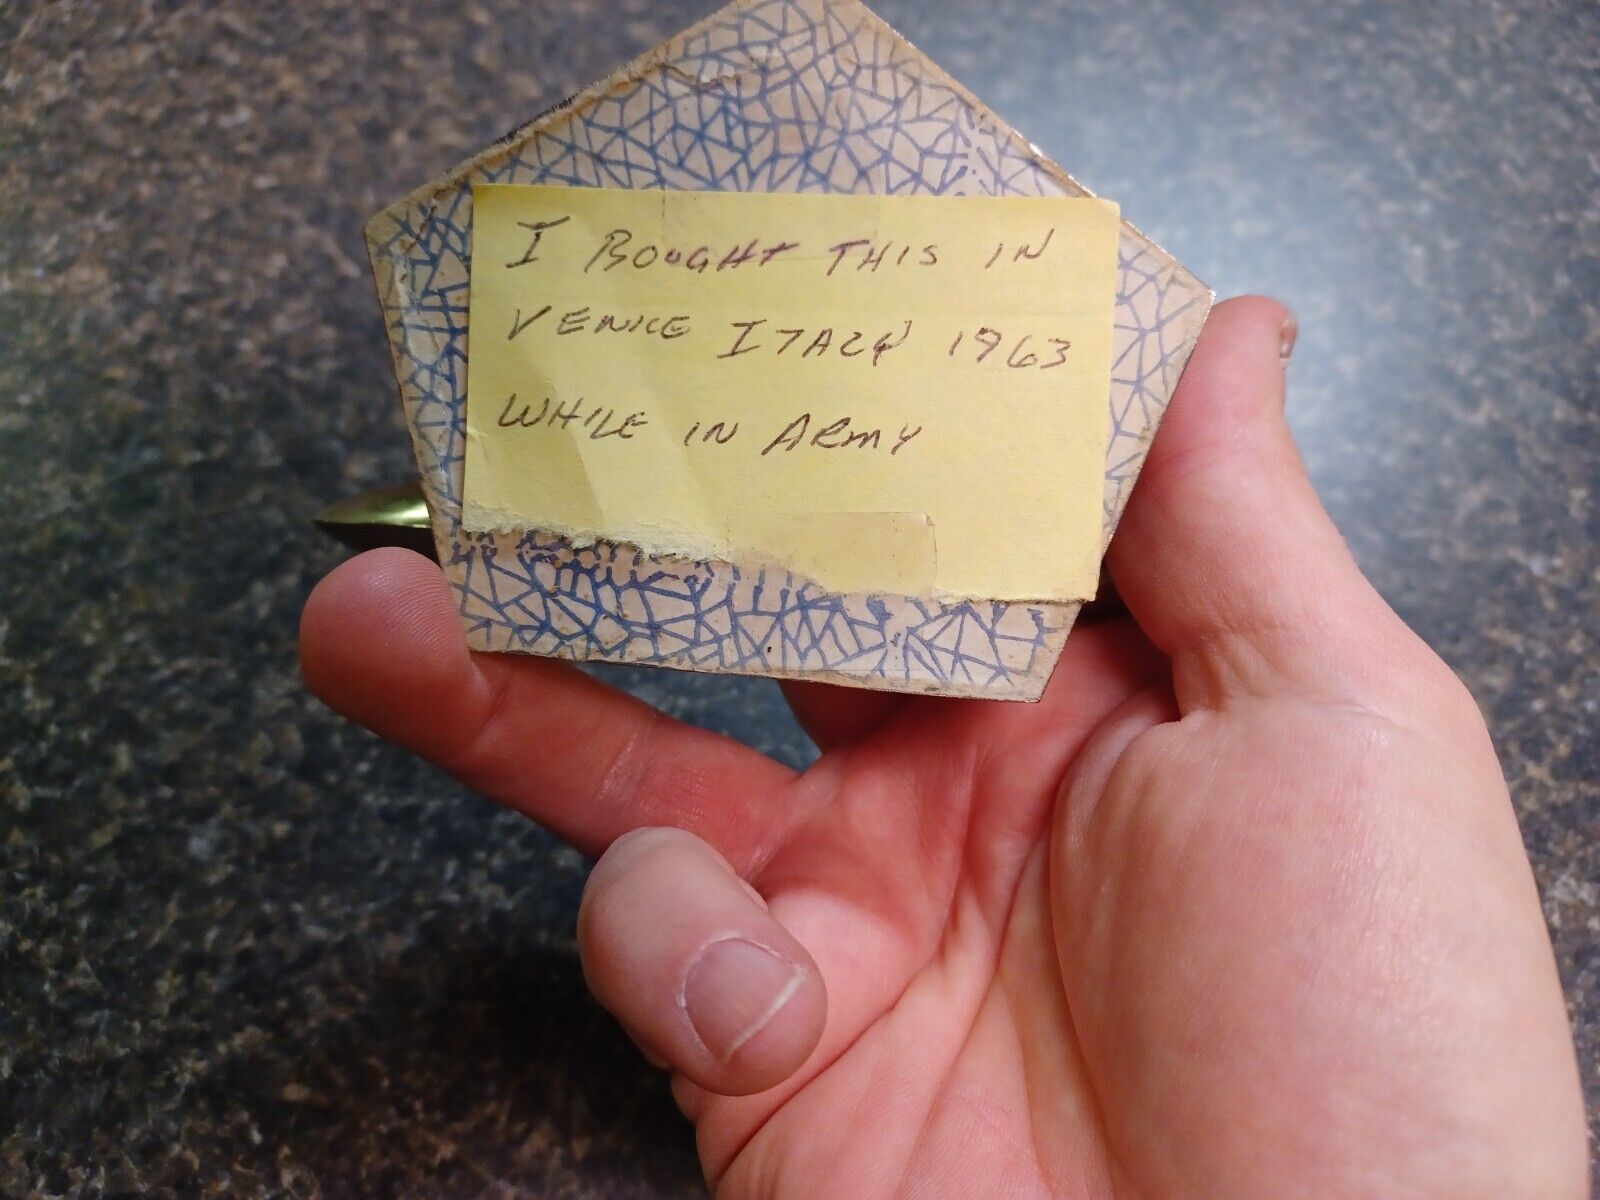 I BOUGHT THIS IN
VENICE ITALY 1963
WHILE IN ARMY